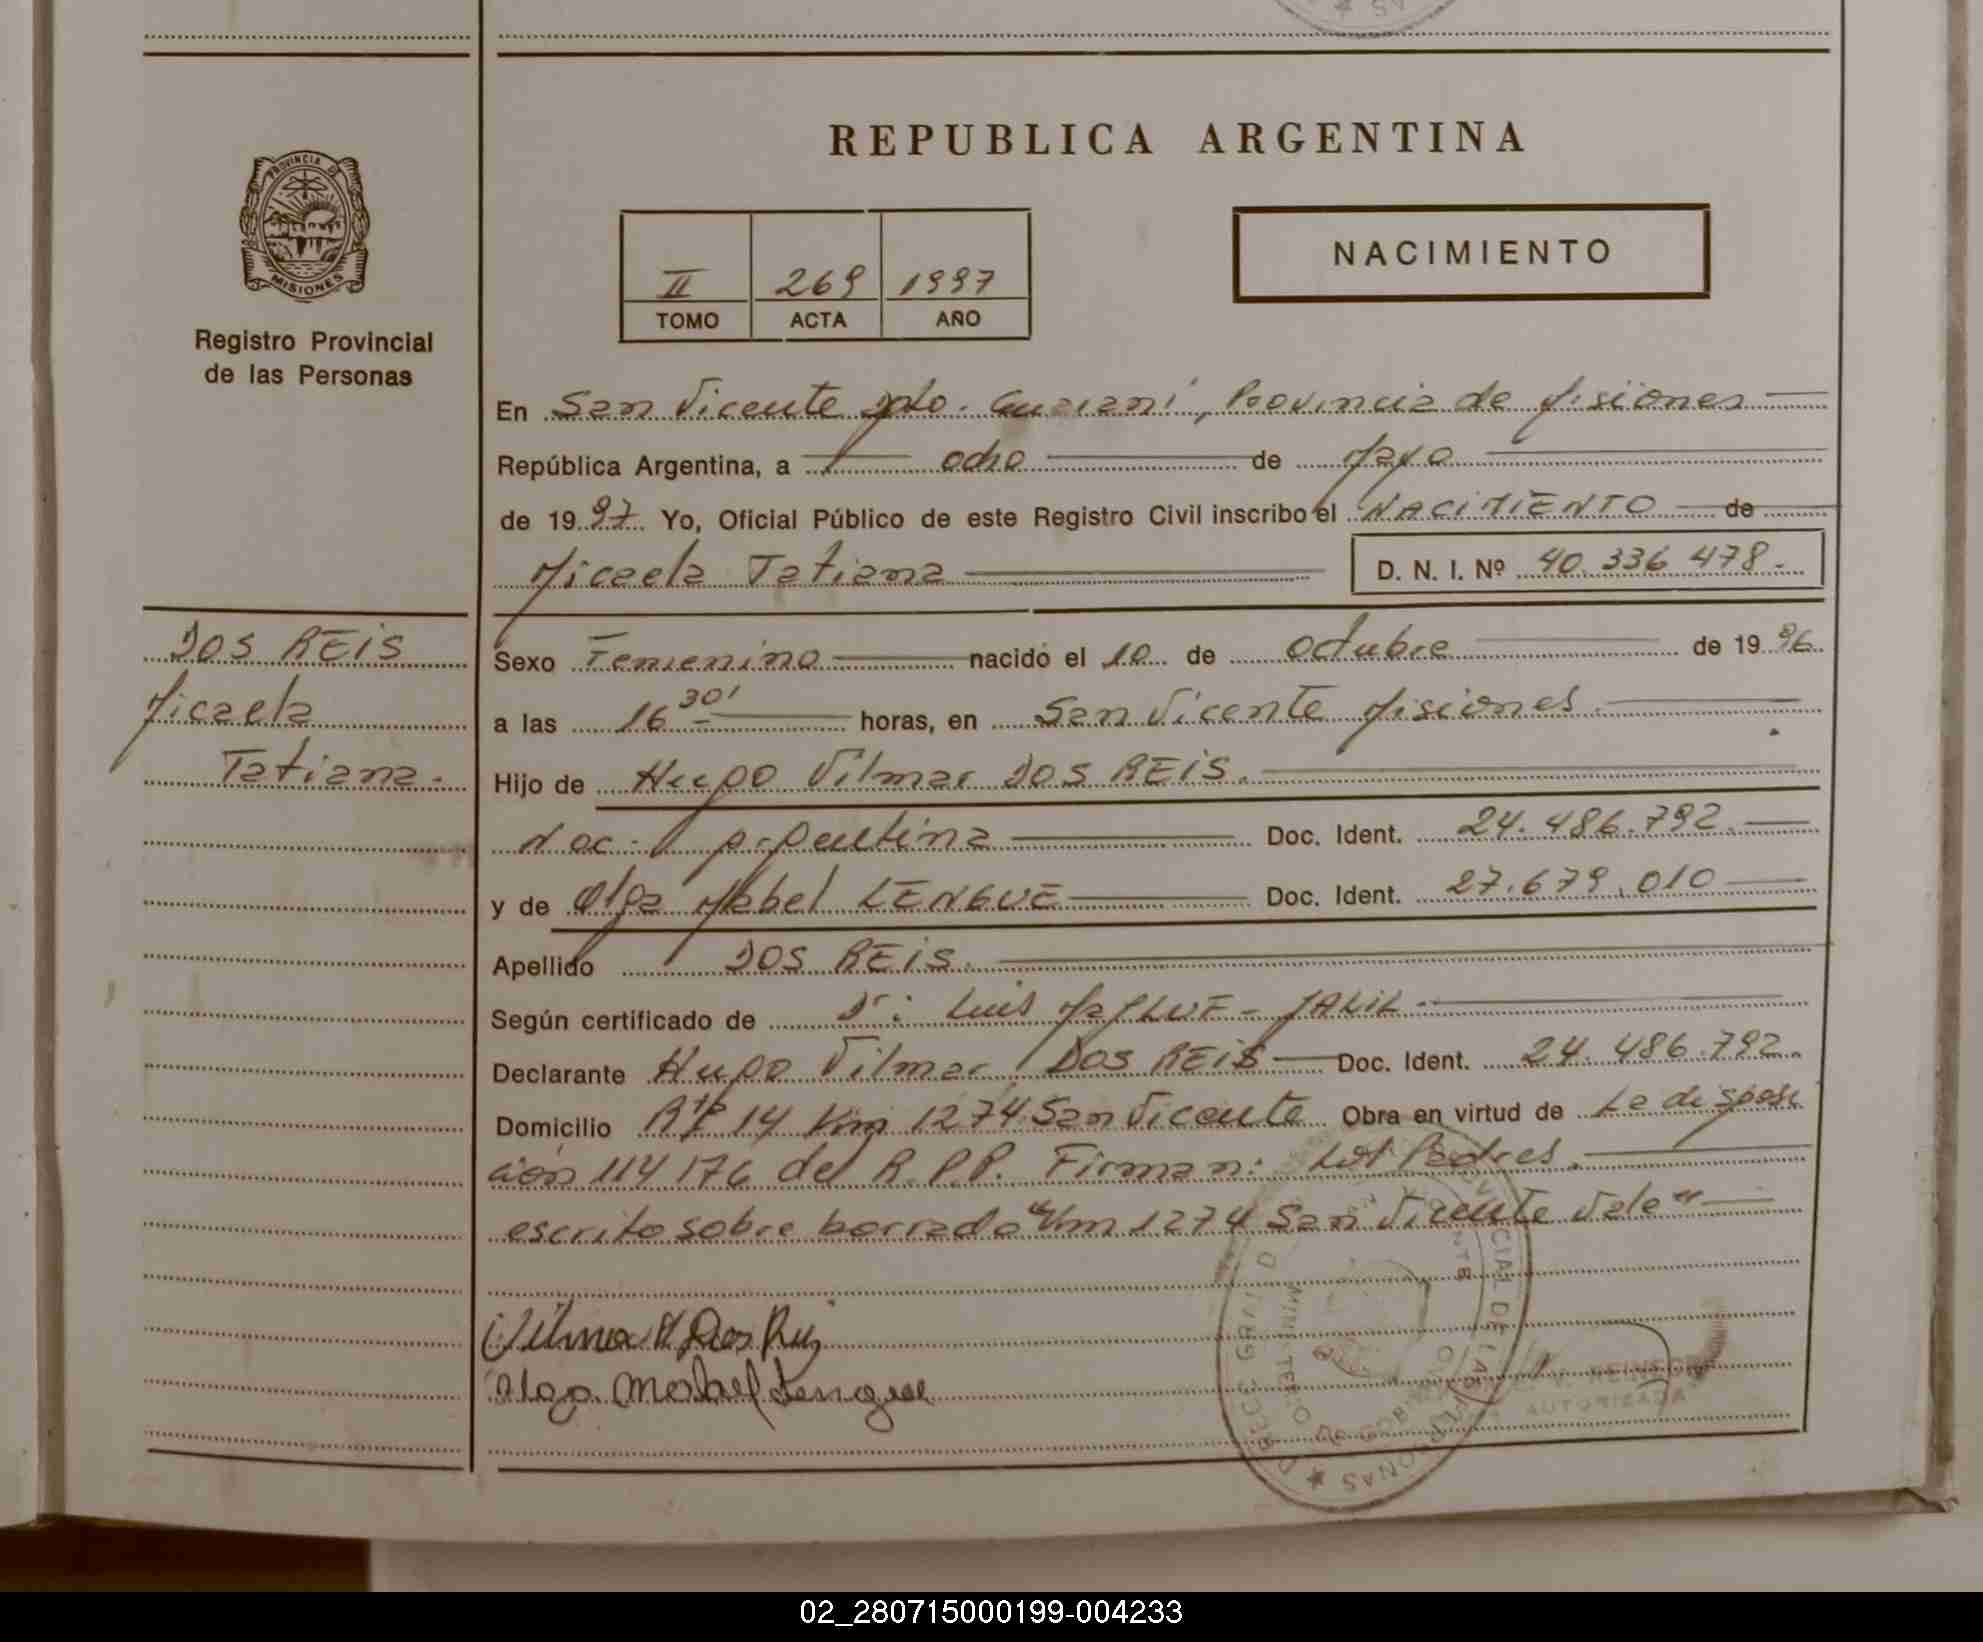 REPUBLICA ARGENTINA
PROVINCIA DE
MISIONES
Registro Provincial
de las Personas
NACIMIENTO
II 269 1997
TOMO ACTA AÑO
En San Vicente Dpto. Guarani, Provincia de Misiones
República Argentina, a ocho de Mayo
de 1997 Yo, Oficial Público de este Registro Civil inscribo el NACIMIENTO de
Micaela Tatiana D. N. I. Nº 40.336.478.
DOS REIS
Micaela
Tatiana.
Sexo Femenino nacido el 10 de octubre de 1996
a las 16 30' horas, en San Vicente Misiones.
Hijo de Hugo Vilmar DOS REIS.
Nac. Argentina Doc. Ident. 24.486.792.
y de Olga Mabel LENGUE Doc. Ident. 27.679.010
Apellido DOS REIS.
Según certificado de Dr: Luis JALIL.
Declarante Hugo Vilmar DOS REIS Doc. Ident. 24.486.792.
Domicilio 14 Km 1274 San Vicente Obra en virtud de La disposi
ción 114/76 del R.P.P. Firman: Los Padres.
escrito sobre borrado "Km 1274 San Vicente Vale"
Olga Mabel Lengue
AUTORIZADA
02_280715000199-004233